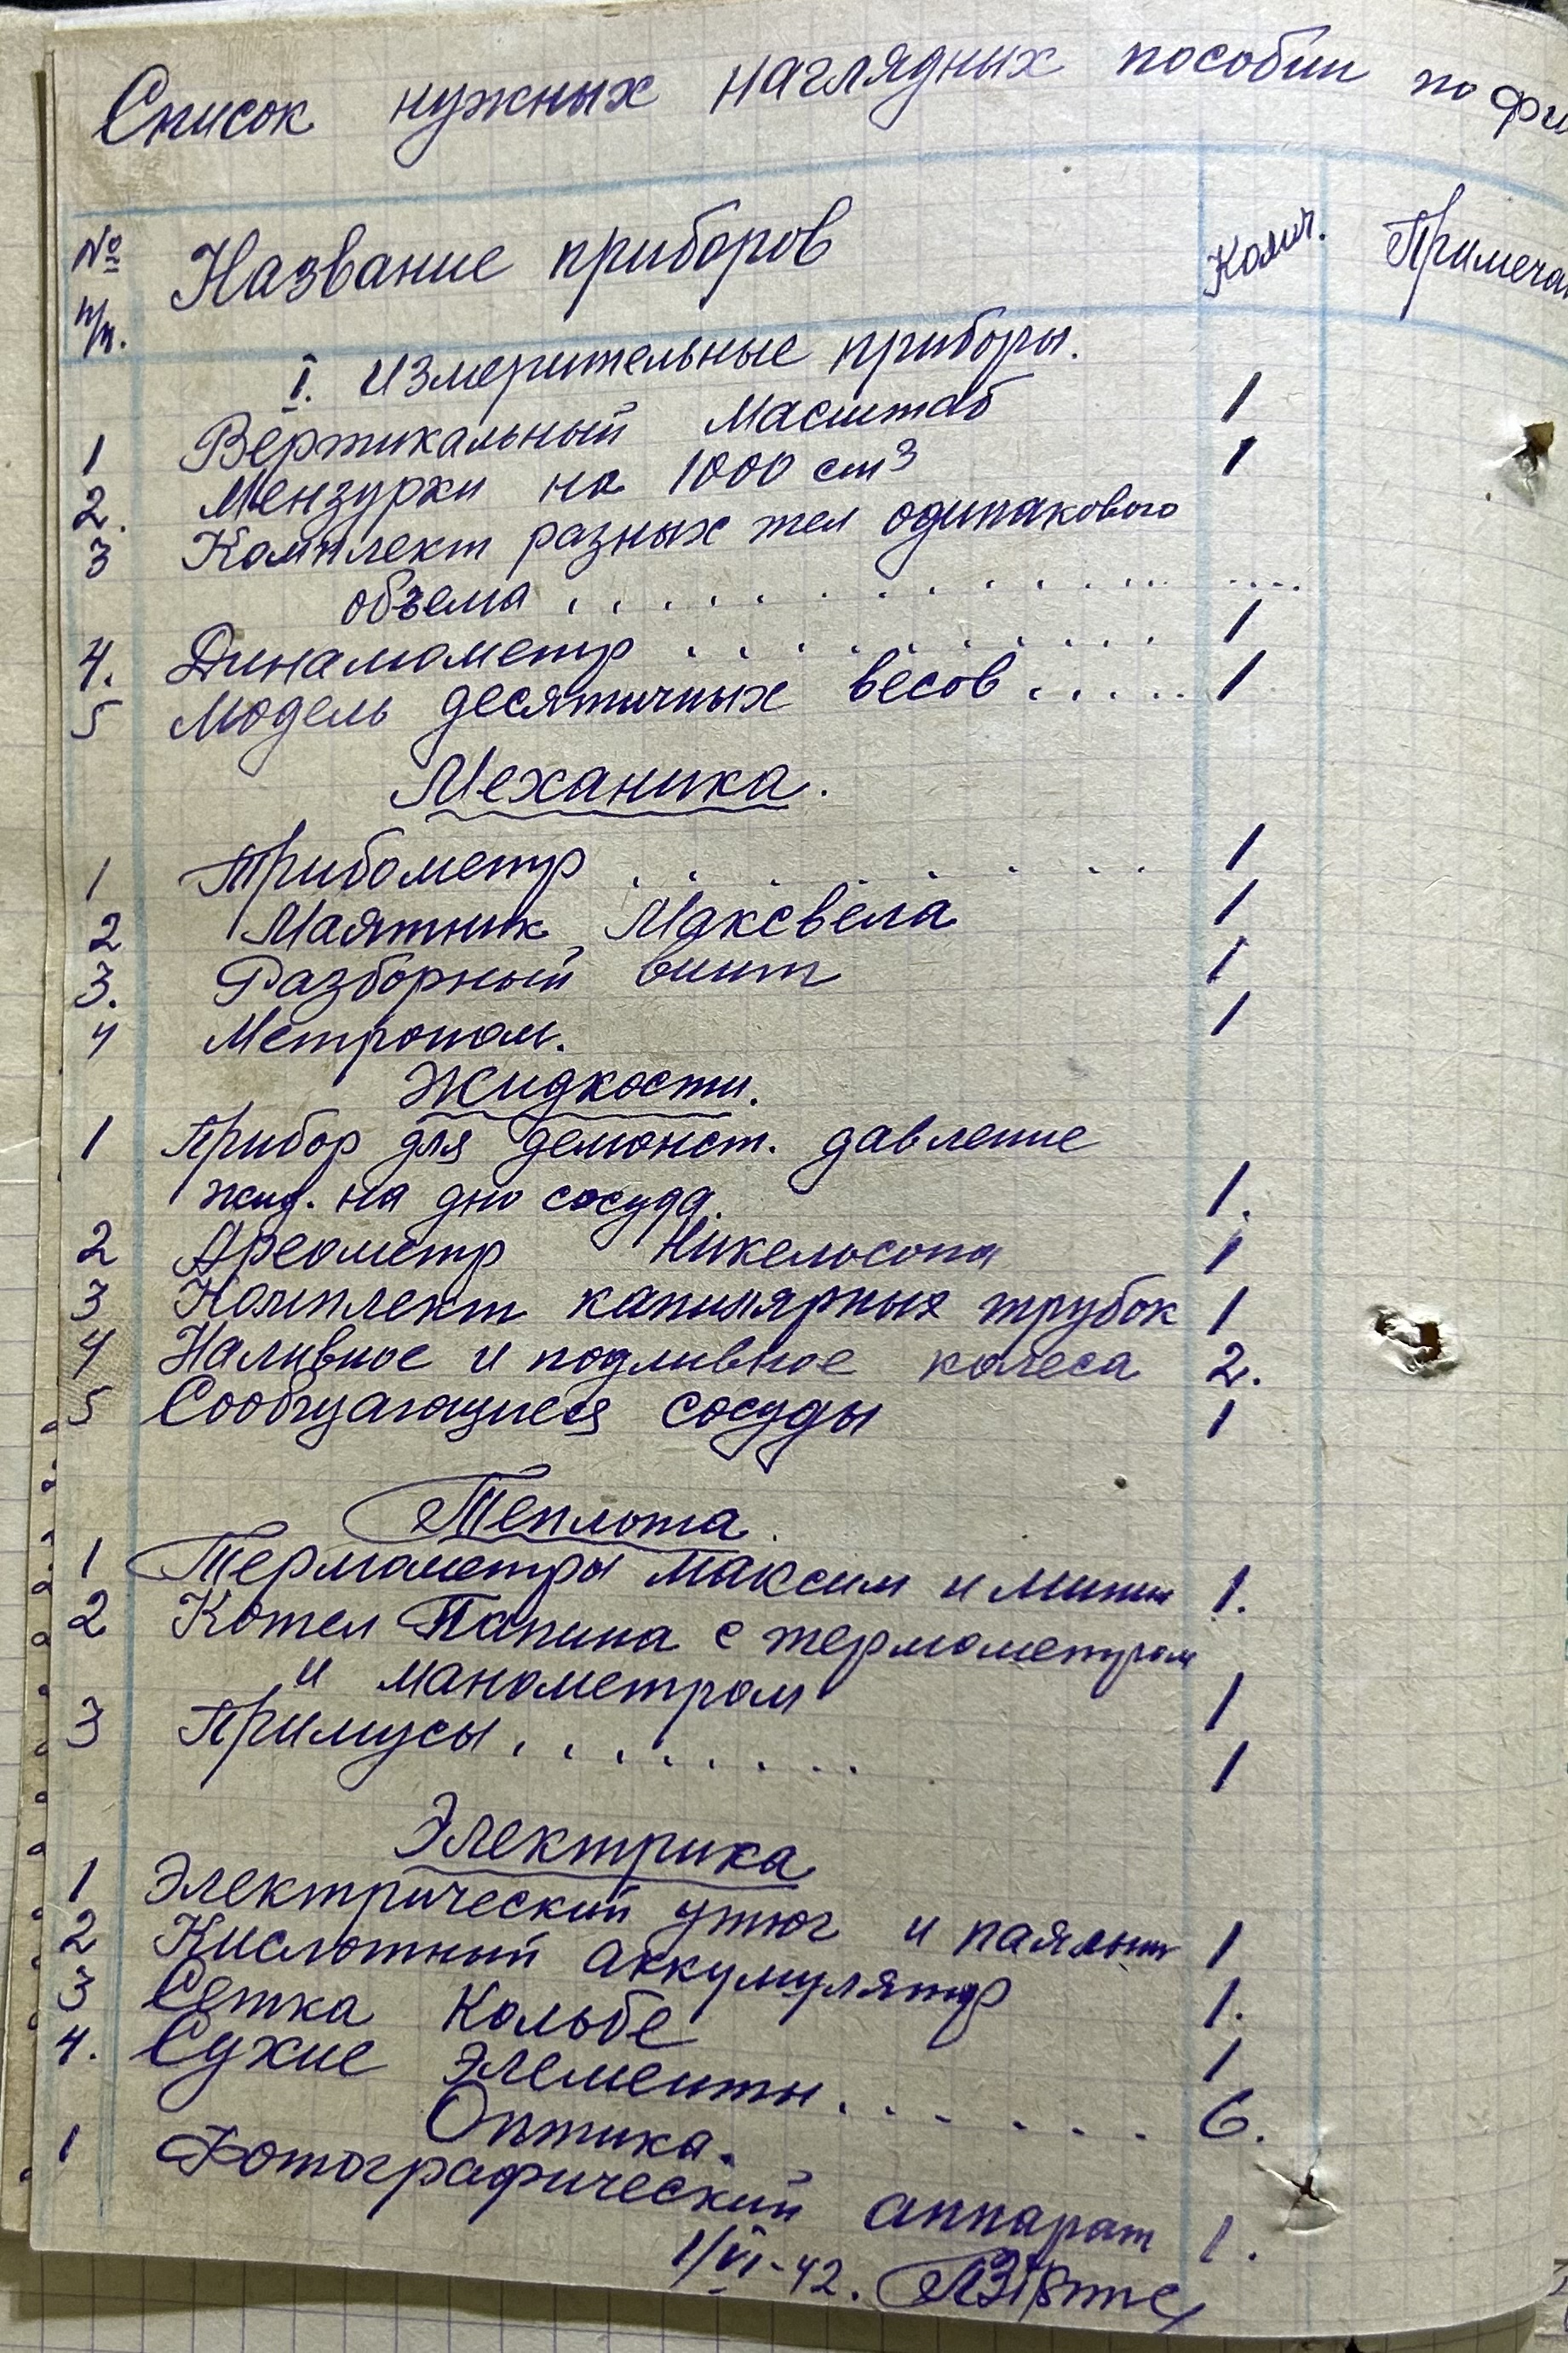 Список нужных наглядных пособии по фи
№ п/п. Название приборов Колич. Примечан
I. Измерительные приборы.
1 Вертикальный масштаб 1
2. Мензурки на 1000 см³ 1
3 Комплект разных тел одинакового
объема . . . . . . . . . . . . . . . .
4. Динамометр . . . . . . . . . . 1
5 Модель десятичных весов . . . . . 1
Механика.
1 Трибометр . . . . . . . . . 1
2 Маятник Максвела 1
3. Разборный винт 1
4 Метроном. 1
Жидкости.
1 Прибор для демонст. давление
жид. на дно сосуда. 1.
2 Ареометр Никельсона 1
3 Комплект капилярных трубок 1
4 Наливное и подливное колеса 2.
5 Сообщающиеся сосуды 1
Теплота
1 Термометры максим и миним 1.
2 Котел Папина с термометром
и манометром 1
3 Примусы . . . . . . . . 1
Электрика
1 Электрический утюг и паяльн 1
2 Кислотный аккумулятор 1.
3 Сетка Кольбе 1
4. Сухие элементы . . . . . . 6.
Оптика.
1 Фотографический аппарат 1.
1/VI-42.